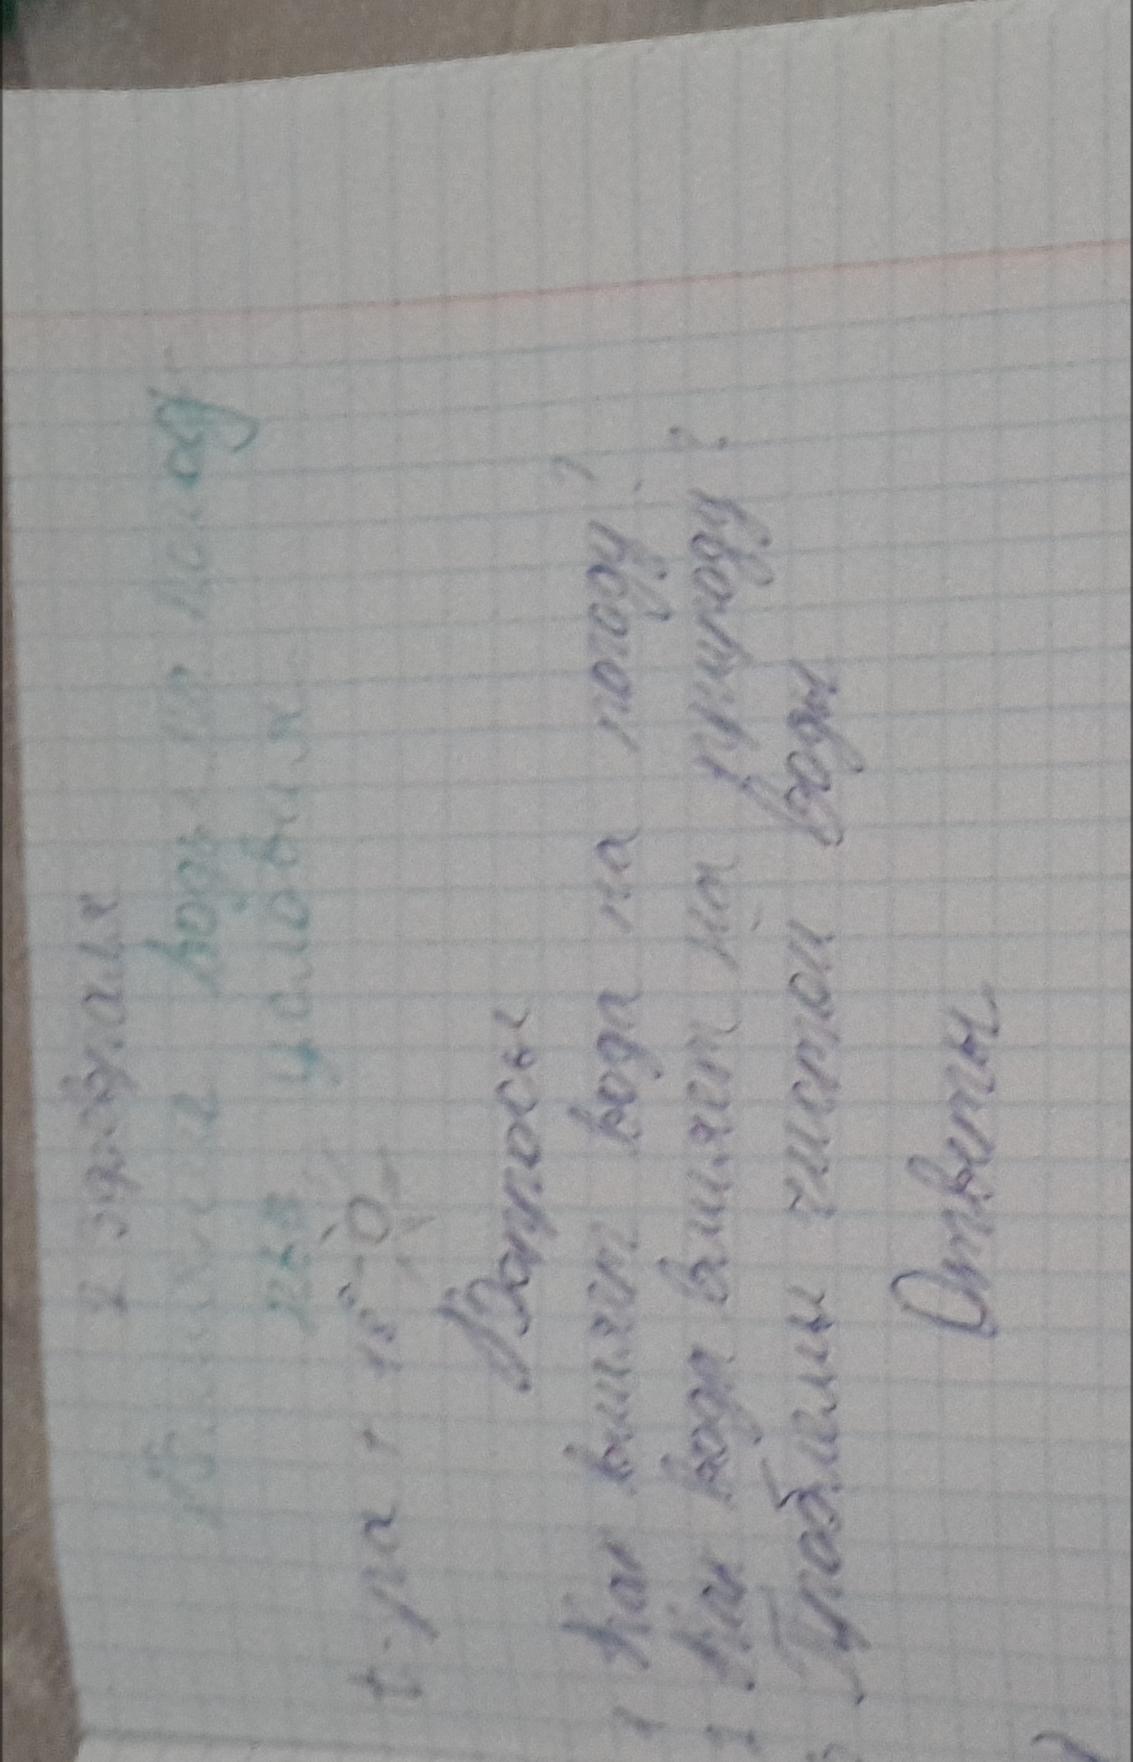 2 февраля
Влияние воды на погод
ные условия
t-ра + 18°
Вопросы
1 Как влияет вода на погоду?
2 Как вода влияет на природу?
Проблемы чистой воды
Ответы